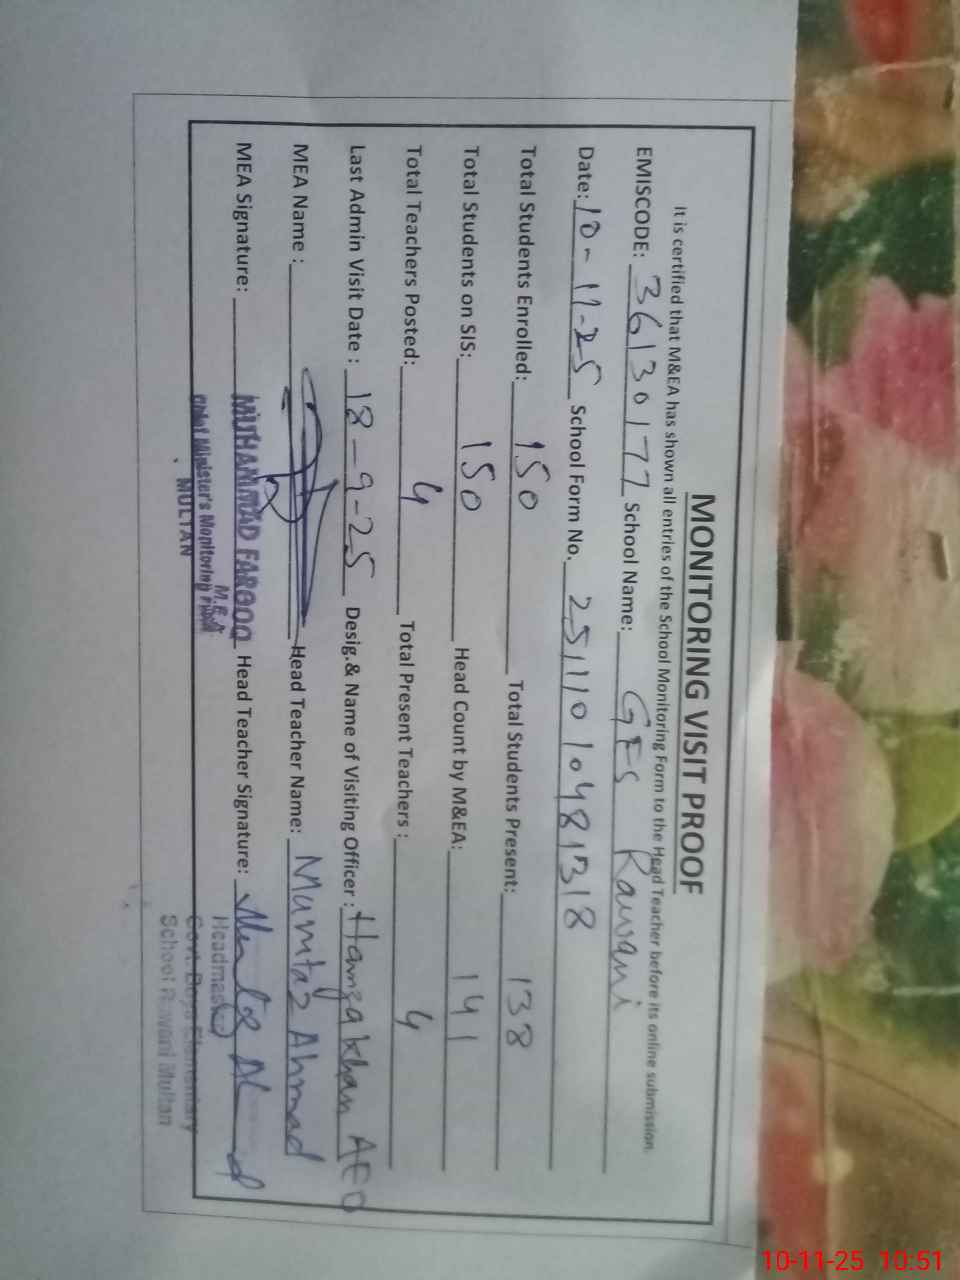 MONITORING VISIT PROOF
It is certified that M&EA has shown all entries of the School Monitoring Form to the Head Teacher before its online submission.
EMISCODE: 36130177 School Name: GES Rawani
Date: 10-11-25 School Form No. 25111010481318
Total Students Enrolled: 150 Total Students Present: 138
Total Students on SIS: 150 Head Count by M&EA: 141
Total Teachers Posted: 4 Total Present Teachers : 4
Last Admin Visit Date : 18-9-25 Desig.& Name of Visiting Officer : Hamza Khan AEO
MEA Name : Head Teacher Name: Mumtaz Ahmad
MEA Signature: Head Teacher Signature:
MUHAMMAD FAROOQ
M.E.A
Chief Minister's Monitoring Force
MULTAN
Headmaster
Govt. Boys Elementary
School Rawani Multan
10-11-25 10:51